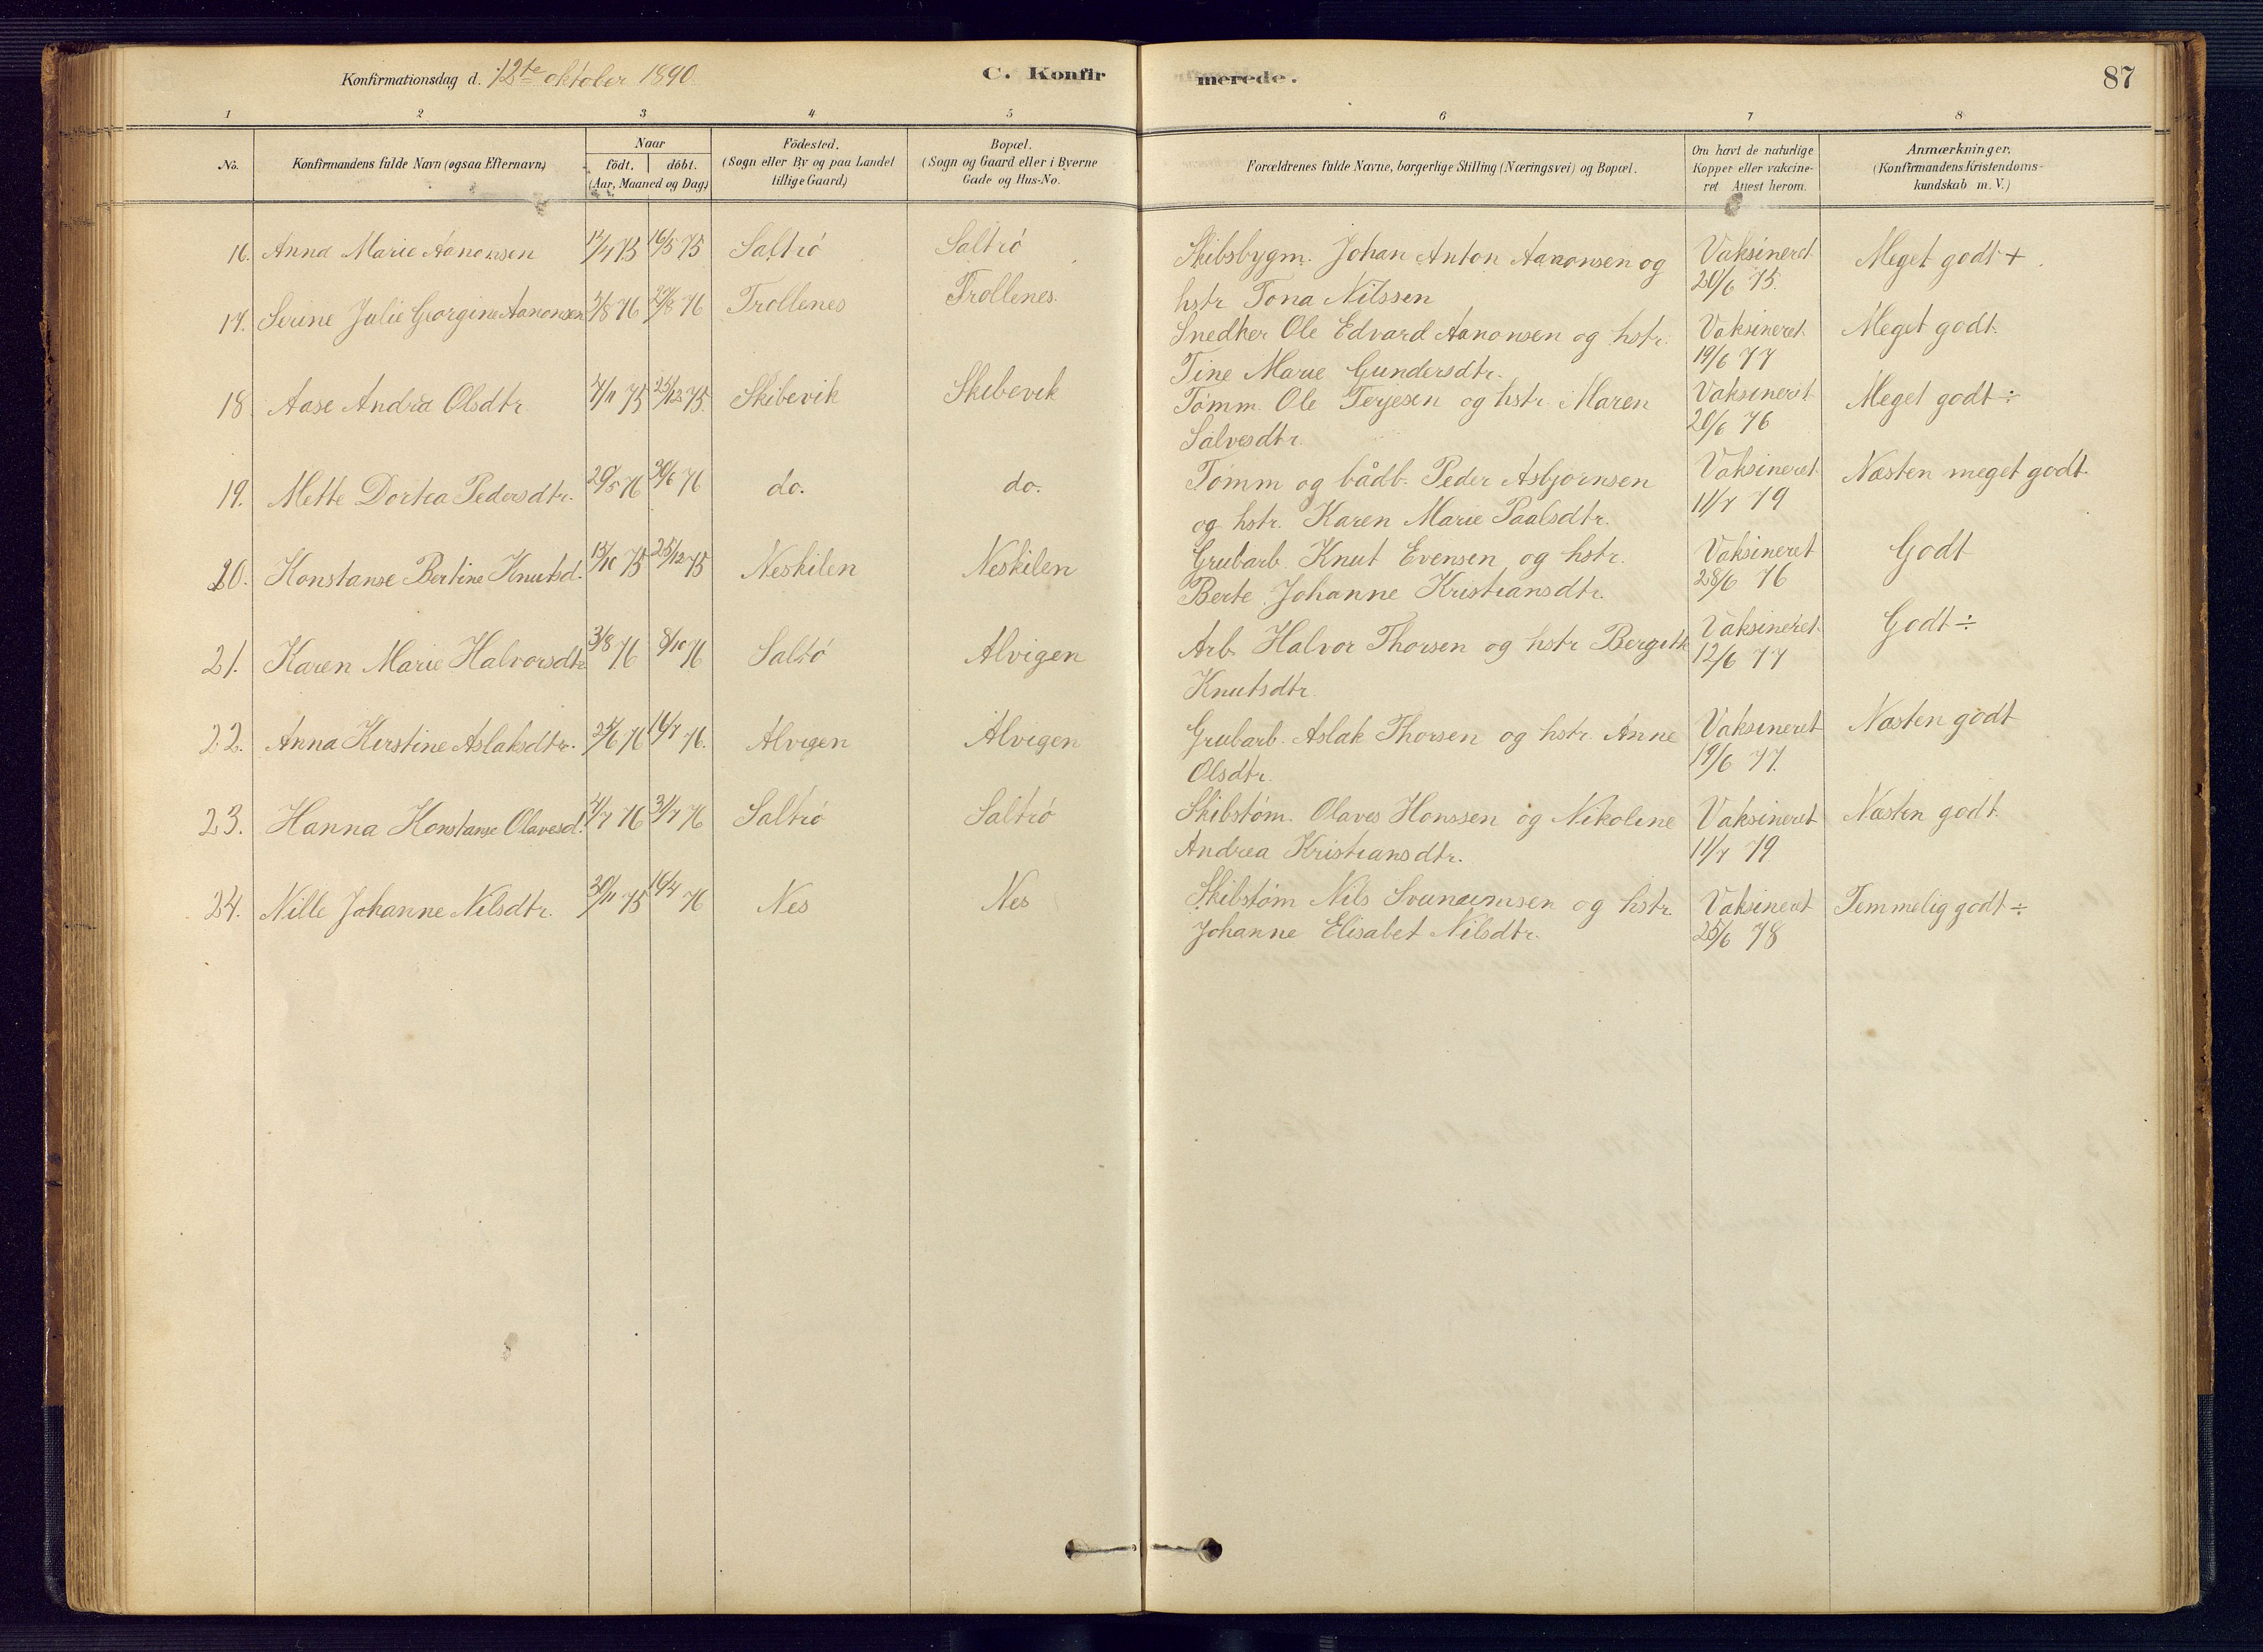 Konfirmationsdag d. 12te oktober 1890.
C. Konfirmerede.
87
1 2 3 4 5 6 7 8
No.
Konfirmandens fulde Navn (ogsaa Efternavn)
Naar
født. døbt.
(Aar, Maaned og Dag)
Fødested.
(Sogn eller By og paa Landet
tillige Gaard)
Bopæl.
(Sogn og Gaard eller i Byerne
Gade og Hus-No.
Forældrenes fulde Navne, borgerlige Stilling (Næringsvei) og Bopæl.
Om havt de naturlige
Kopper eller vakcine-
ret Attest herom.
Anmærkninger.
(Konfirmandens Kristendoms-
kundskab m. V.)
16. Anna Marie Aanonsen 75 16/5 75 Saltrø Saltrø Skibsbygm. Johan Anton Aanonsen og Vaksineret Meget godt +
hstr Tona Nilssen 20/6 75.
17. Serine Julie Georgine Aanonsen 5/8 76 76 Trollenes Trollenes. Snedker Ole Edvard Aanonsen og hstr. Vaksineret Meget godt.
Tine Marie Gundersdtr. 19/6 77
18 Aase Andrea Olsdtr 75 25/12 75. Skibevik Skibevik Tømm. Ole Terjesen og hstr. Maren Vaksineret Meget godt ÷
Salvesdtr. 20/6 76
19. Mette Dortea Pedersdtr. 29/5 76 30/6 76 do. do. Tømm og bådb. Peder Asbjørnsen Vaksineret Næsten meget godt
og hstr. Karen Marie Paalsdtr. 11/7 79
20. Konstanse Bertine Knutsd. 13/10 75 25/12 75 Neskilen Neskilen Grubarb. Knut Evensen og hstr. Vaksineret Godt
Berte Johanne Kristiansdtr. 28/6 76
21. Karen Marie Halvorsdtr 3/8 76 8/10 76 Saltrø Alvigen Arb. Halvor Thorsen og hstr Bergith Vaksineret Godt ÷
Knutsdtr. 12/6 77
22. Anna Kirstine Aslaksdtr. 76 16/7 76. Alvigen Alvigen Grubarb. Aslak Thorsen og hstr. Anne Vaksineret Næsten godt
Olsdtr. 19/6 77.
23. Hanna Konstanse Olavesd. 76 31/7 76 Saltrø Saltrø Skibstøm. Olaves Hanssen og Nikoline Vaksineret Næsten godt.
Andrea Kristiansdtr. 11/7 79
24. Nille Johanne Nilsdtr. 30/11 75 16/4 76 Nes Nes Skibstøm Nils og hstr Vaksineret Temmelig godt ÷
Johanne Elisabet Nilsdtr. 25/6 78